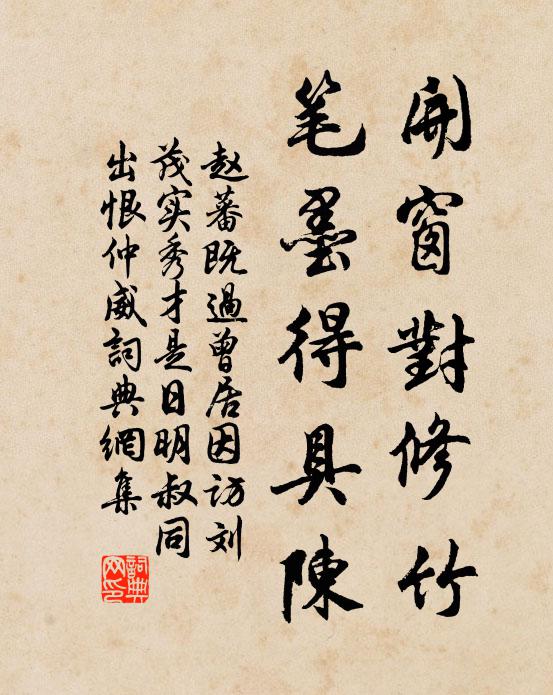 開窗對修竹
笔墨得具陳
赵蕃既過曾居因访刘
茂实秀才是日明叔同
出恨仲威詞典網集
詞典
网印